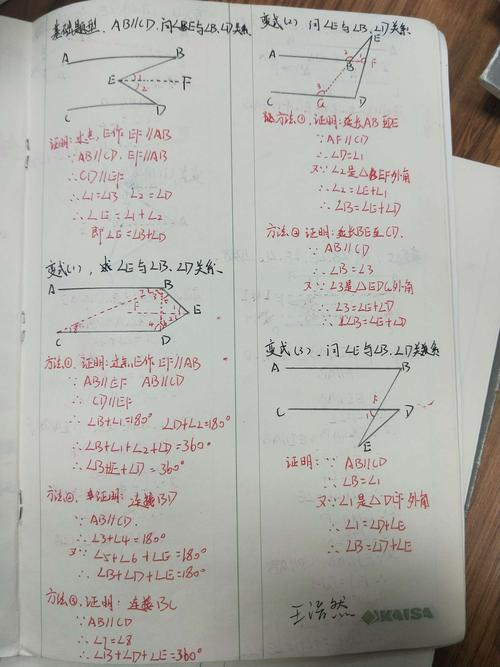 基础题型. AB∥CD.问∠BE与∠B.∠D关系
A B
E 1 2 F
C D
证明:过点E作EF∥AB
∵AB∥CD. EF∥AB
∴CD∥EF
∴∠1=∠B ∠2=∠D
∴∠E=∠1+∠2
即∠E=∠B+∠D
变式(1),求∠E与∠B.∠D关系.
A B
F E
C D
方法①.证明:过点E作EF∥AB
∵AB∥EF AB∥CD
∴CD∥EF
∴∠B+∠1=180° ∠D+∠2=180°
∴∠B+∠1+∠2+∠D=360°
∴∠B+∠E+∠D=360°
方法②.证明:连接BD
∵AB∥CD.
∴∠3+∠4=180°
又∵∠5+∠6+∠E=180°
∴∠B+∠D+∠E=180°
方法③,证明:连接BC
∵AB∥CD
∴∠7=∠8
∴∠B+∠D+∠E=360°
变式(2)问∠E与∠B.∠D关系
E
A B F
C G D
方法①.证明:延长AB至E
∵AF∥CD
∴∠D=∠1
又∵∠2是△BEF外角
∴∠2=∠E+∠1
∴∠B=∠E+∠D
方法②证明:延长BE至CD.
∵AB∥CD
∴∠B=∠3
又∵∠3是△EDG外角
∴∠3=∠E+∠D
∴∠B=∠E+∠D
变式(3).问∠E与∠B.∠D关系
A B
C F D
1
E
证明:∵AB∥CD
∴∠B=∠1
又∵∠1是△DEF外角
∴∠1=∠D+∠E
∴∠B=∠D+∠E
王浩然
KAISA